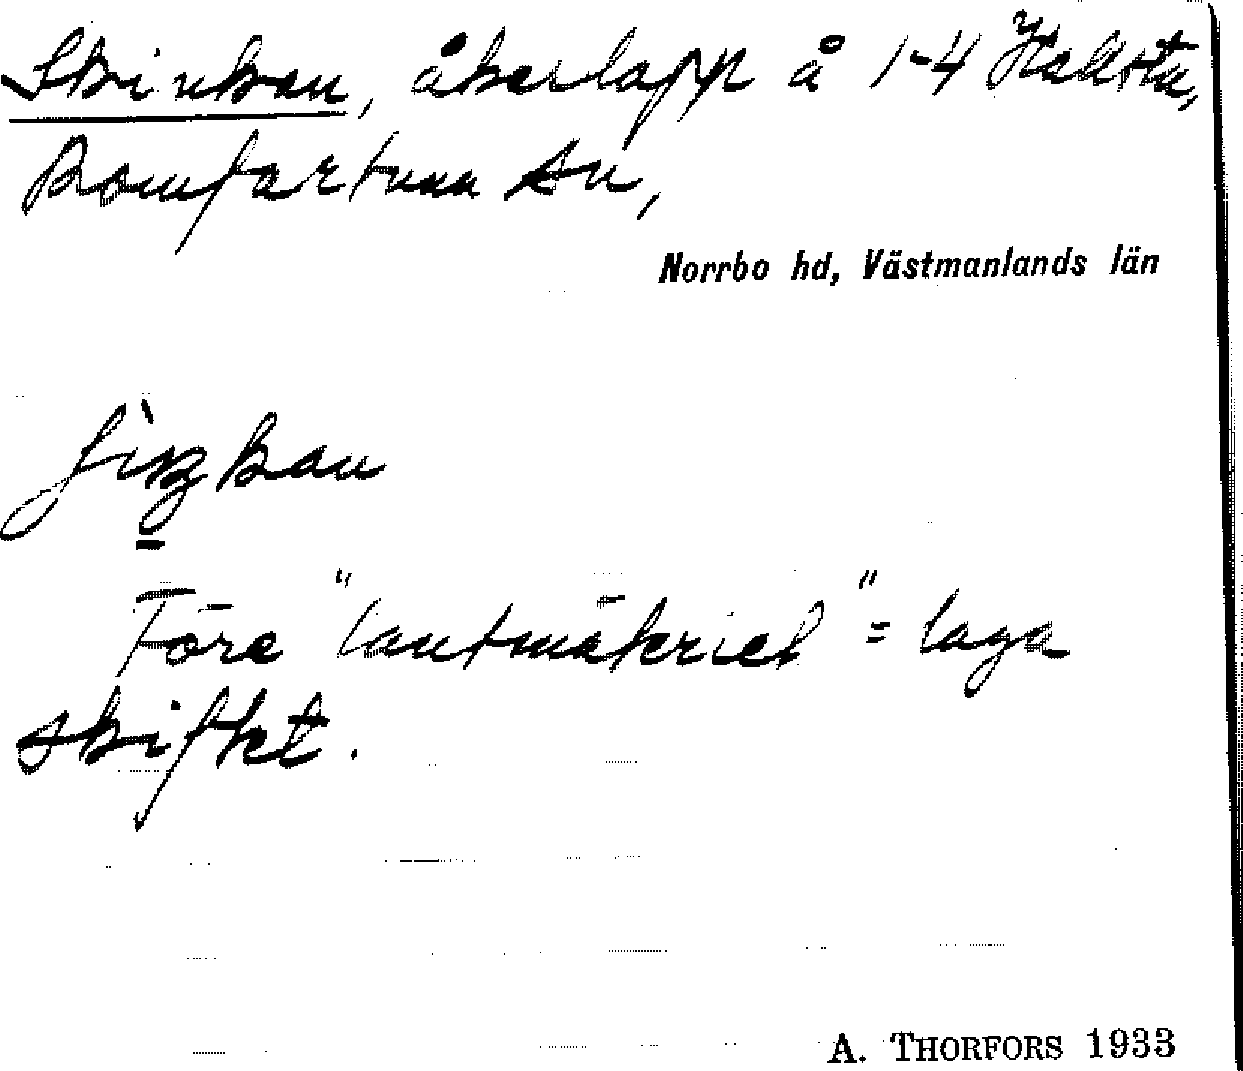 Skinkan, åkerlapp å 1-4 Hallsta,
Romfartuna sn,
Norrbo hd, Västmanlands län
Före "lantmäteriet" = laga
skiftet.
A. THORFORS 1933